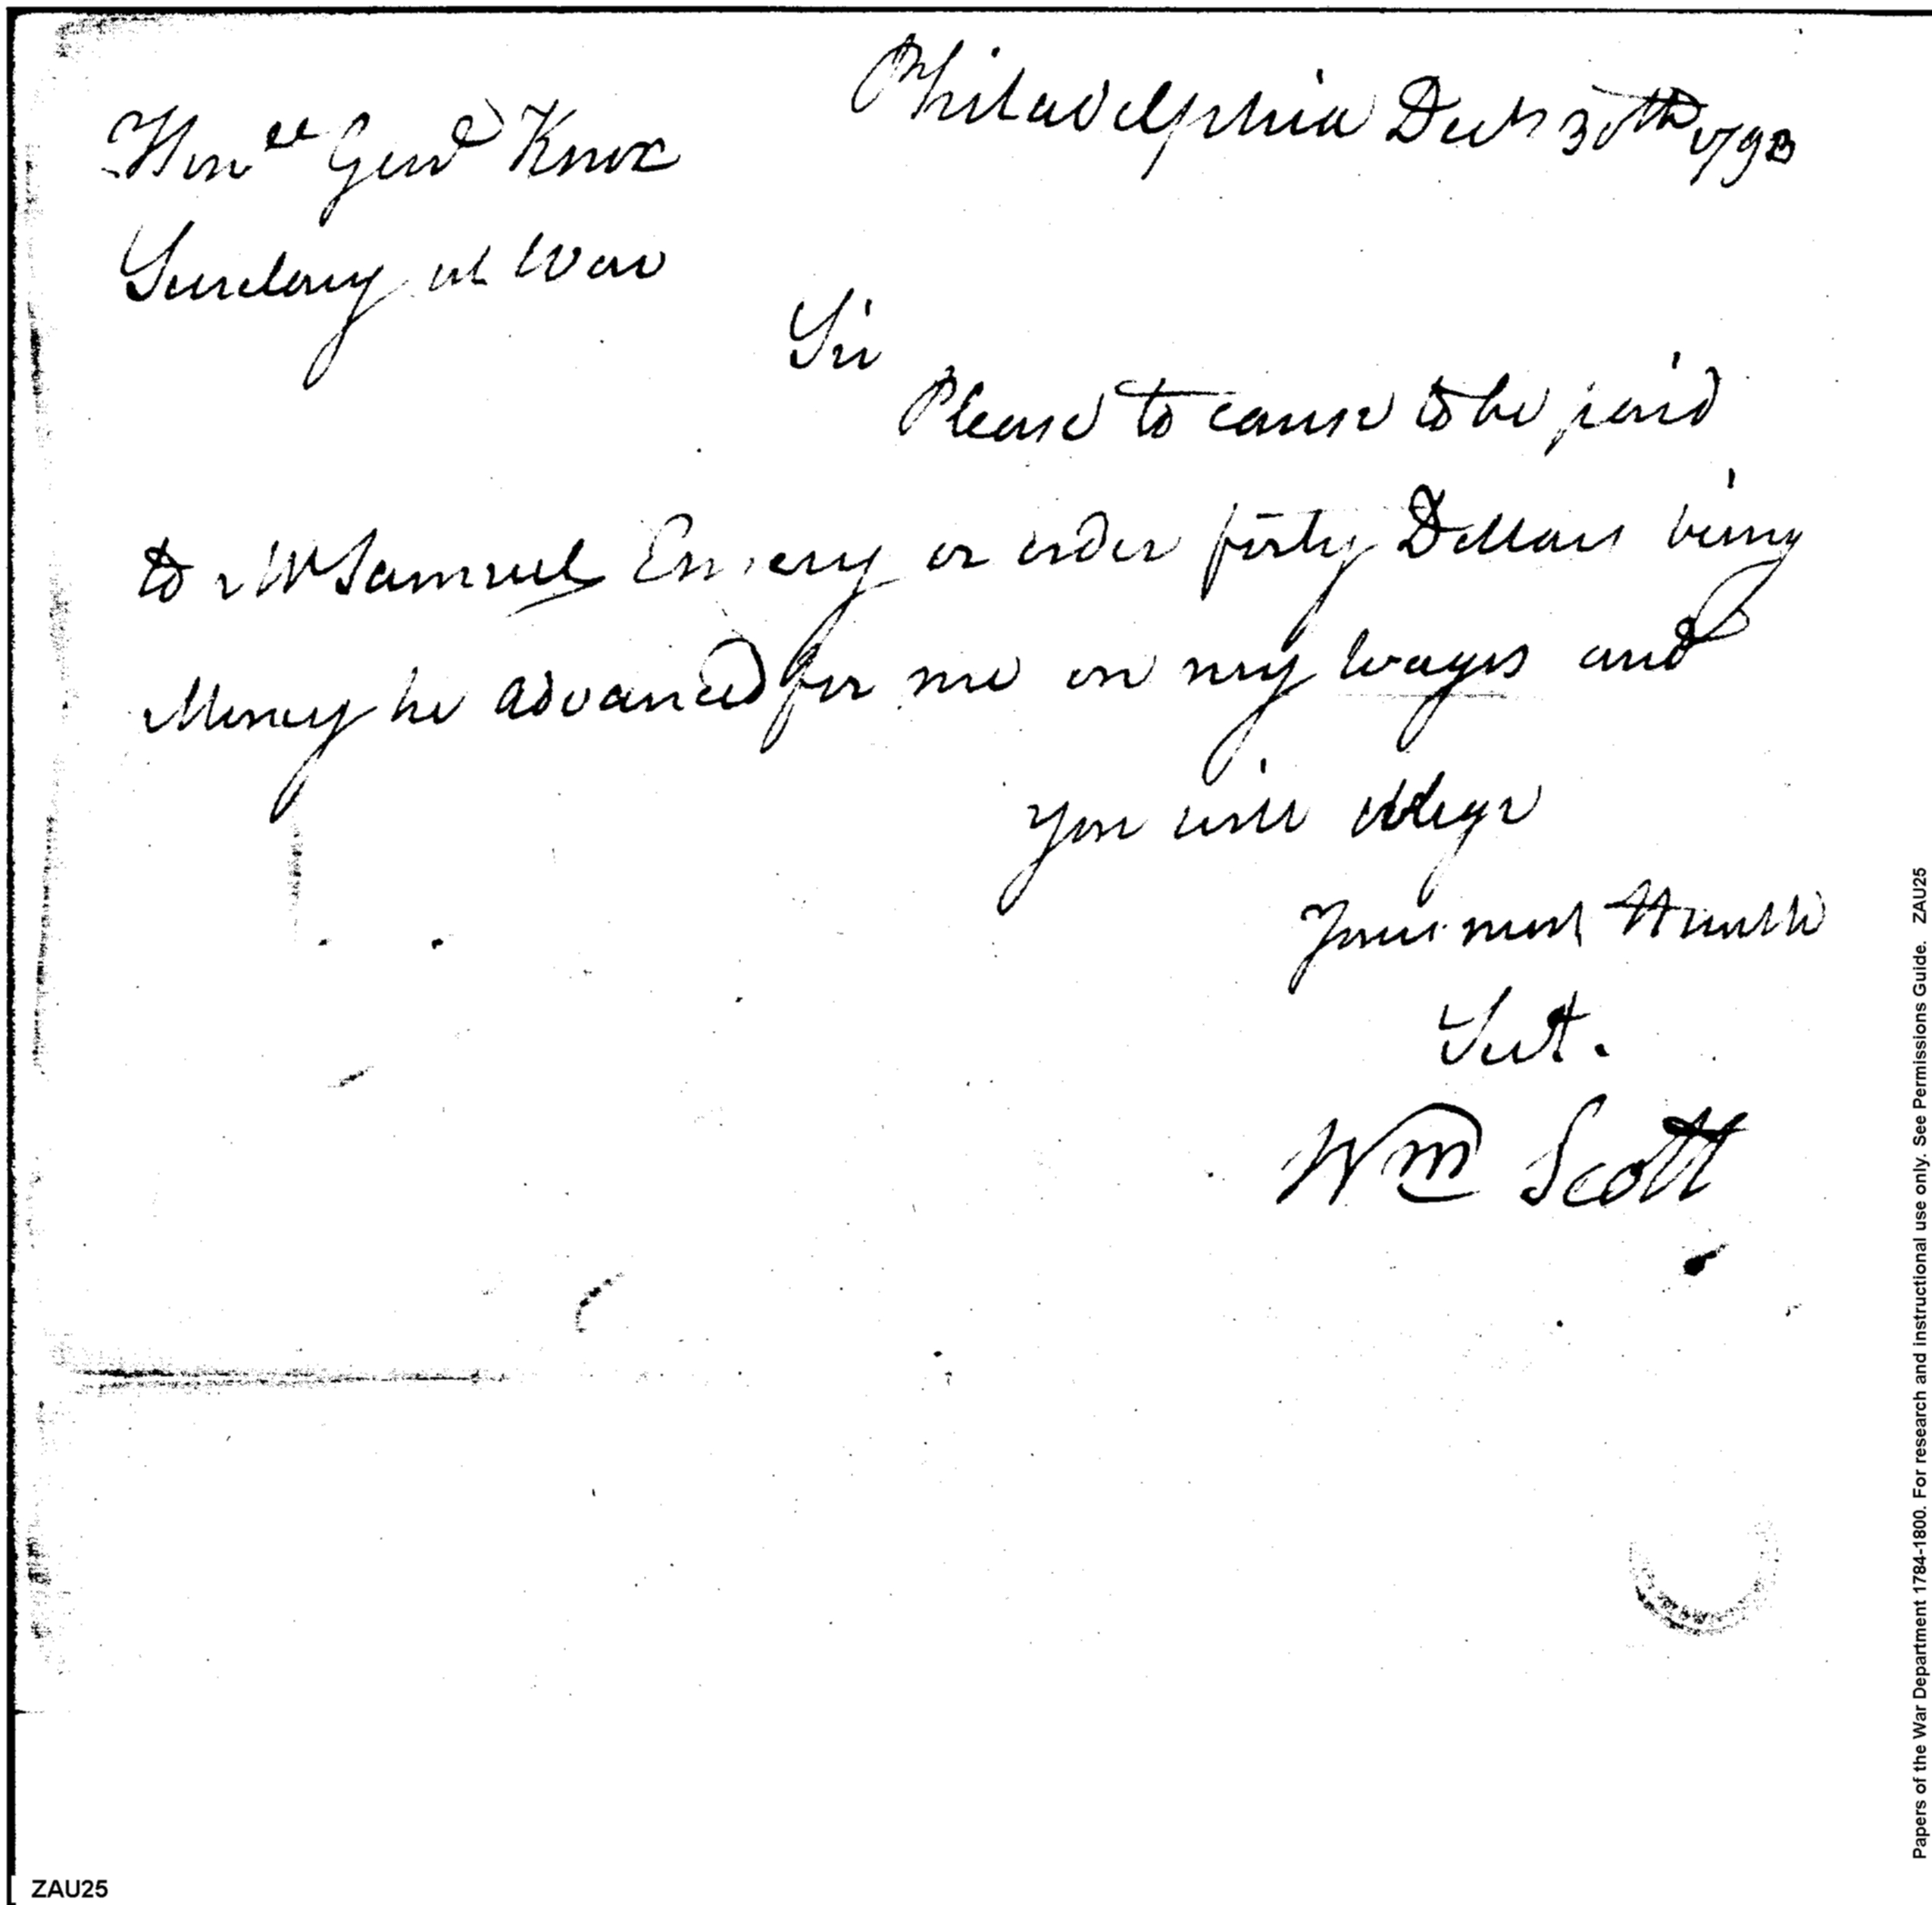 Philadelphia Decr 30th 1793
Honle Genl Knox
Secretary at War
Sir
Please to cause to be paid
to Mr Samuel Emery or order forty Dollars being
Money he advanced for me on my wages and
you will oblige
Your most Humble
Sert.
Wm Scott
Papers of the War Department 1784-1800. For research and instructional use only. See Permissions Guide. ZAU25
ZAU25